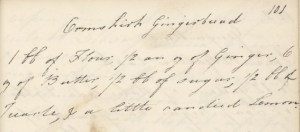 101
Ormskirk Gingerbread
1 lb of Flour, 1/2 an oz of Ginger, 6
oz of Butter, 1/2 lb of sugar, 1/2 lb of
Treacle, & a little candied Lemon